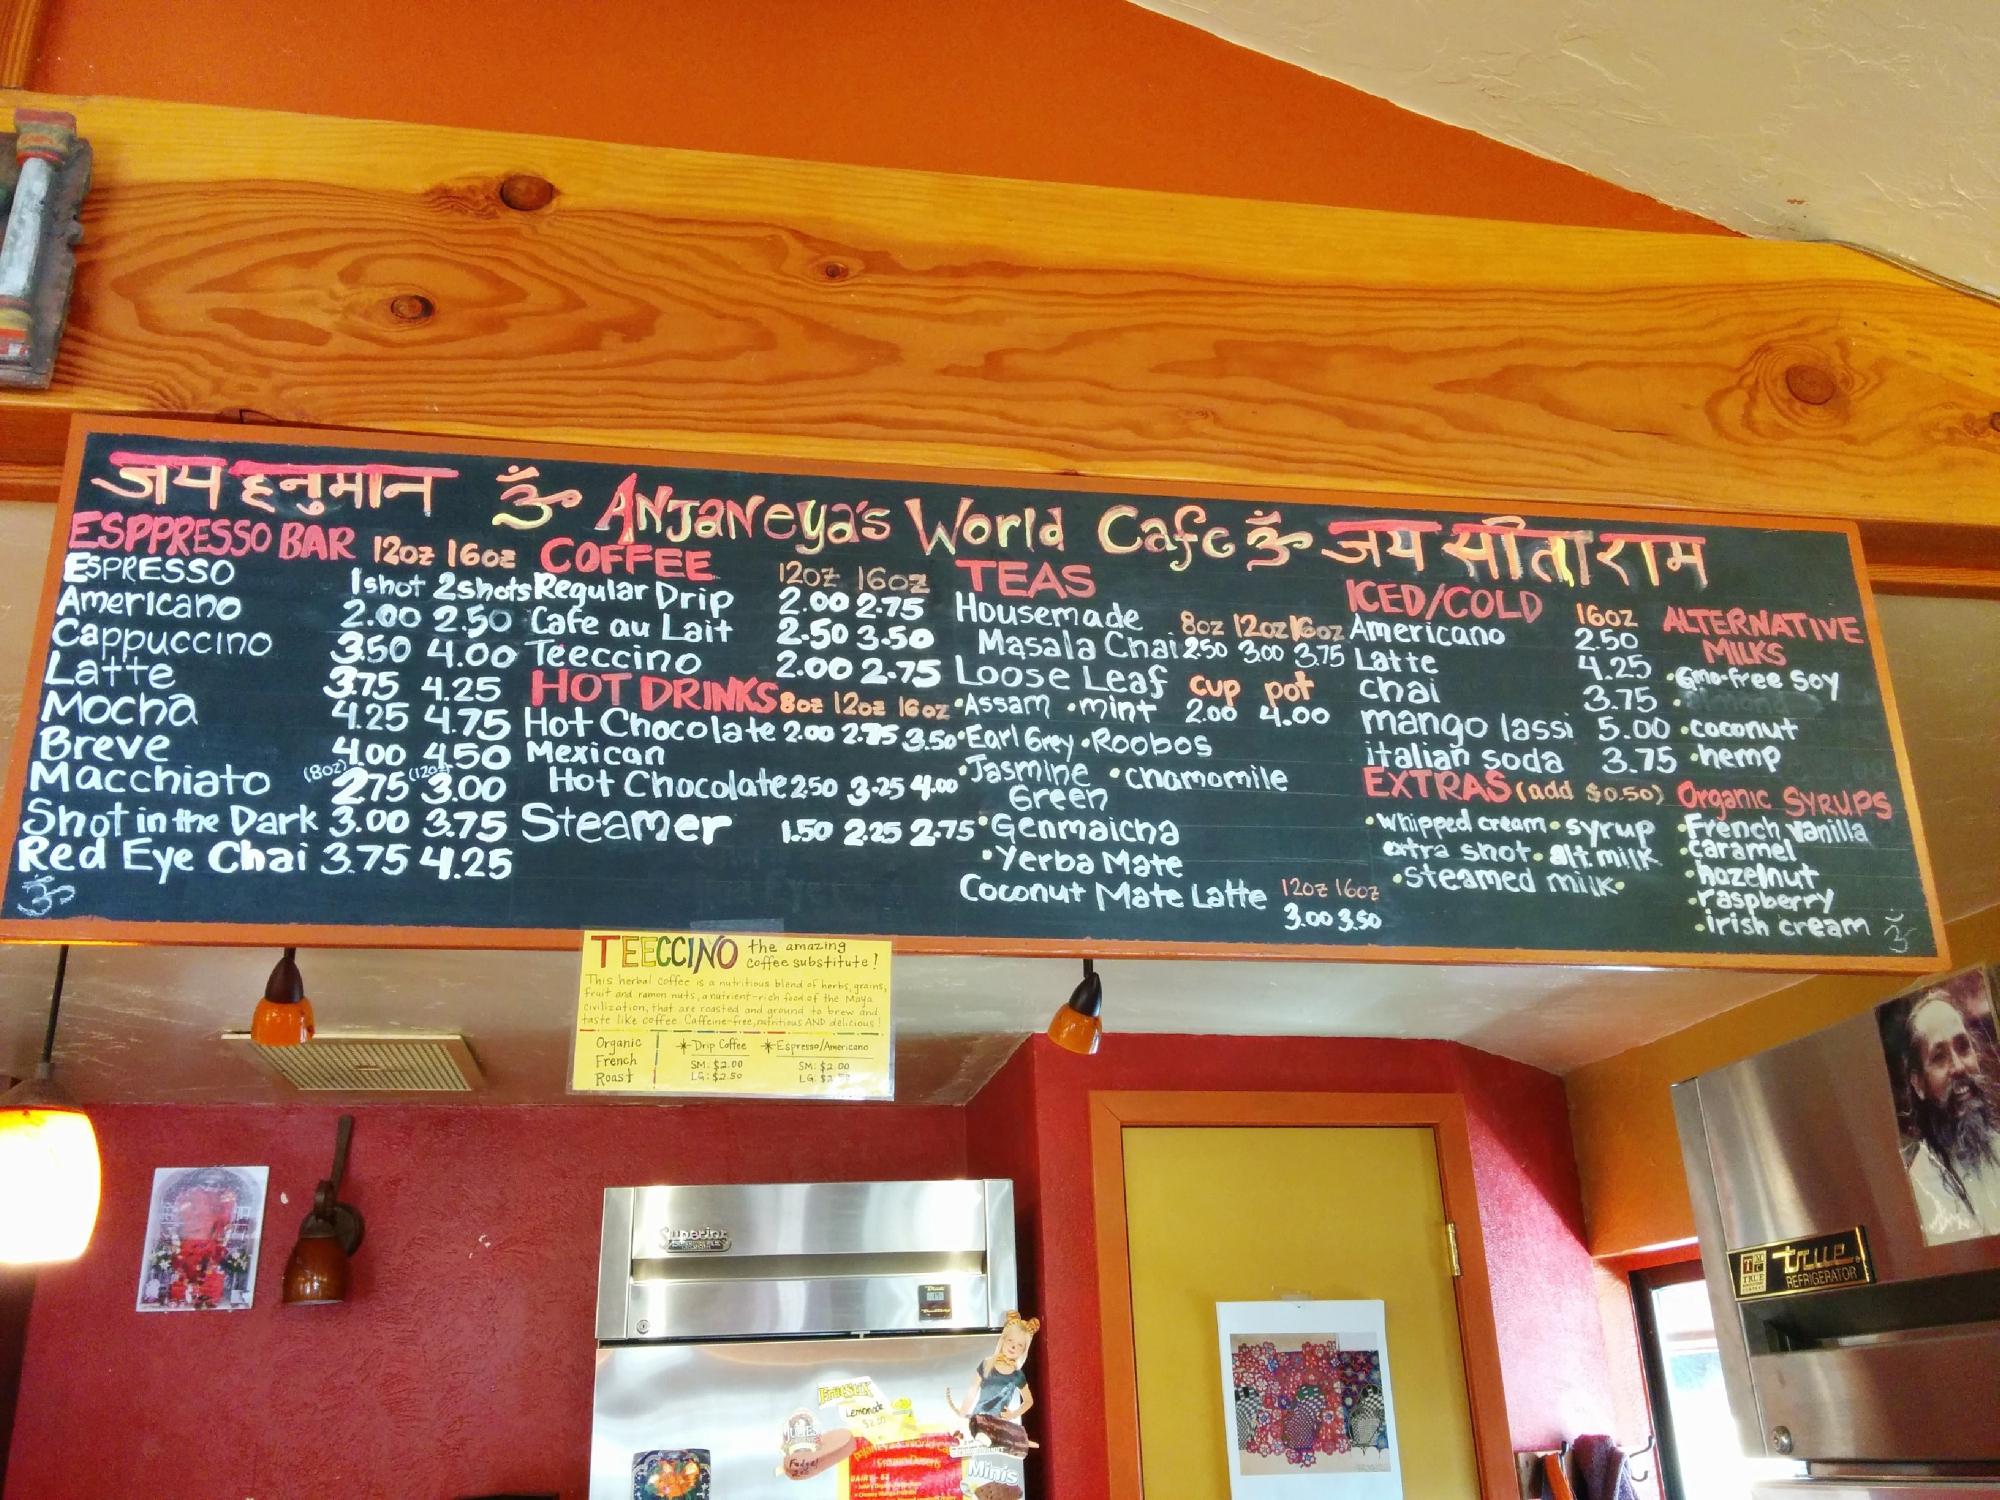 जय हनुमान ॐ ANJANEYA'S World Cafe ॐ जय सीताराम
ESPPRESSO BAR 12oz 16oz
ESPRESSO 1shot 2shots
Americano 2.00 2.50
Cappuccino 3.50 4.00
Latte 3.75 4.25
Mocha 4.25 4.75
Breve 4.00 4.50
Macchiato (8oz) 2.75 (12oz) 3.00
Shot in the Dark 3.00 3.75
Red Eye Chai 3.75 4.25
ॐ
COFFEE 12oz 16oz
Regular Drip 2.00 2.75
Cafe au Lait 2.50 3.50
Teeccino 2.00 2.75
HOT DRINKS 8oz 12oz 16oz
Hot Chocolate 2.00 2.75 3.50
Mexican
Hot Chocolate 2.50 3.25 4.00
Steamer 1.50 2.25 2.75
TEAS
Housemade 8oz 12oz 16oz
Masala Chai 2.50 3.00 3.75
Loose Leaf cup pot
•Assam •mint 2.00 4.00
•Earl Grey •Roobos
•Jasmine •chamomile
Green
•Genmaicha
•Yerba Mate
Coconut Mate Latte 12oz 16oz
3.00 3.50
ICED/COLD 16oz
Americano 2.50
Latte 4.25
chai 3.75
mango lassi 5.00
italian soda 3.75
EXTRAS (add $0.50)
•whipped cream •syrup
extra shot •alt.milk
•steamed milk•
ALTERNATIVE
MILKS
•Gmo-free soy
•almond
•coconut
•hemp
Organic SYRUPS
•French vanilla
•caramel
•hazelnut
•raspberry
•irish cream
ॐ
TEECCINO the amazing
coffee substitute!
This herbal coffee is a nutritious blend of herbs, grains,
fruit and ramon nuts, a nutrient-rich food of the Maya
civilization, that are roasted and ground to brew and
taste like coffee. Caffeine-free, nutritious AND delicious!
Organic
French
Roast
*Drip Coffee
SM: $2.00
LG: $2.50
*Espresso/Americano
SM: $2.00
LG: $2.50
Superior
true
REFRIGERATOR
T M
C
TRUE
FruitStix
Lemonade
$2.00
Fudge!
Minis